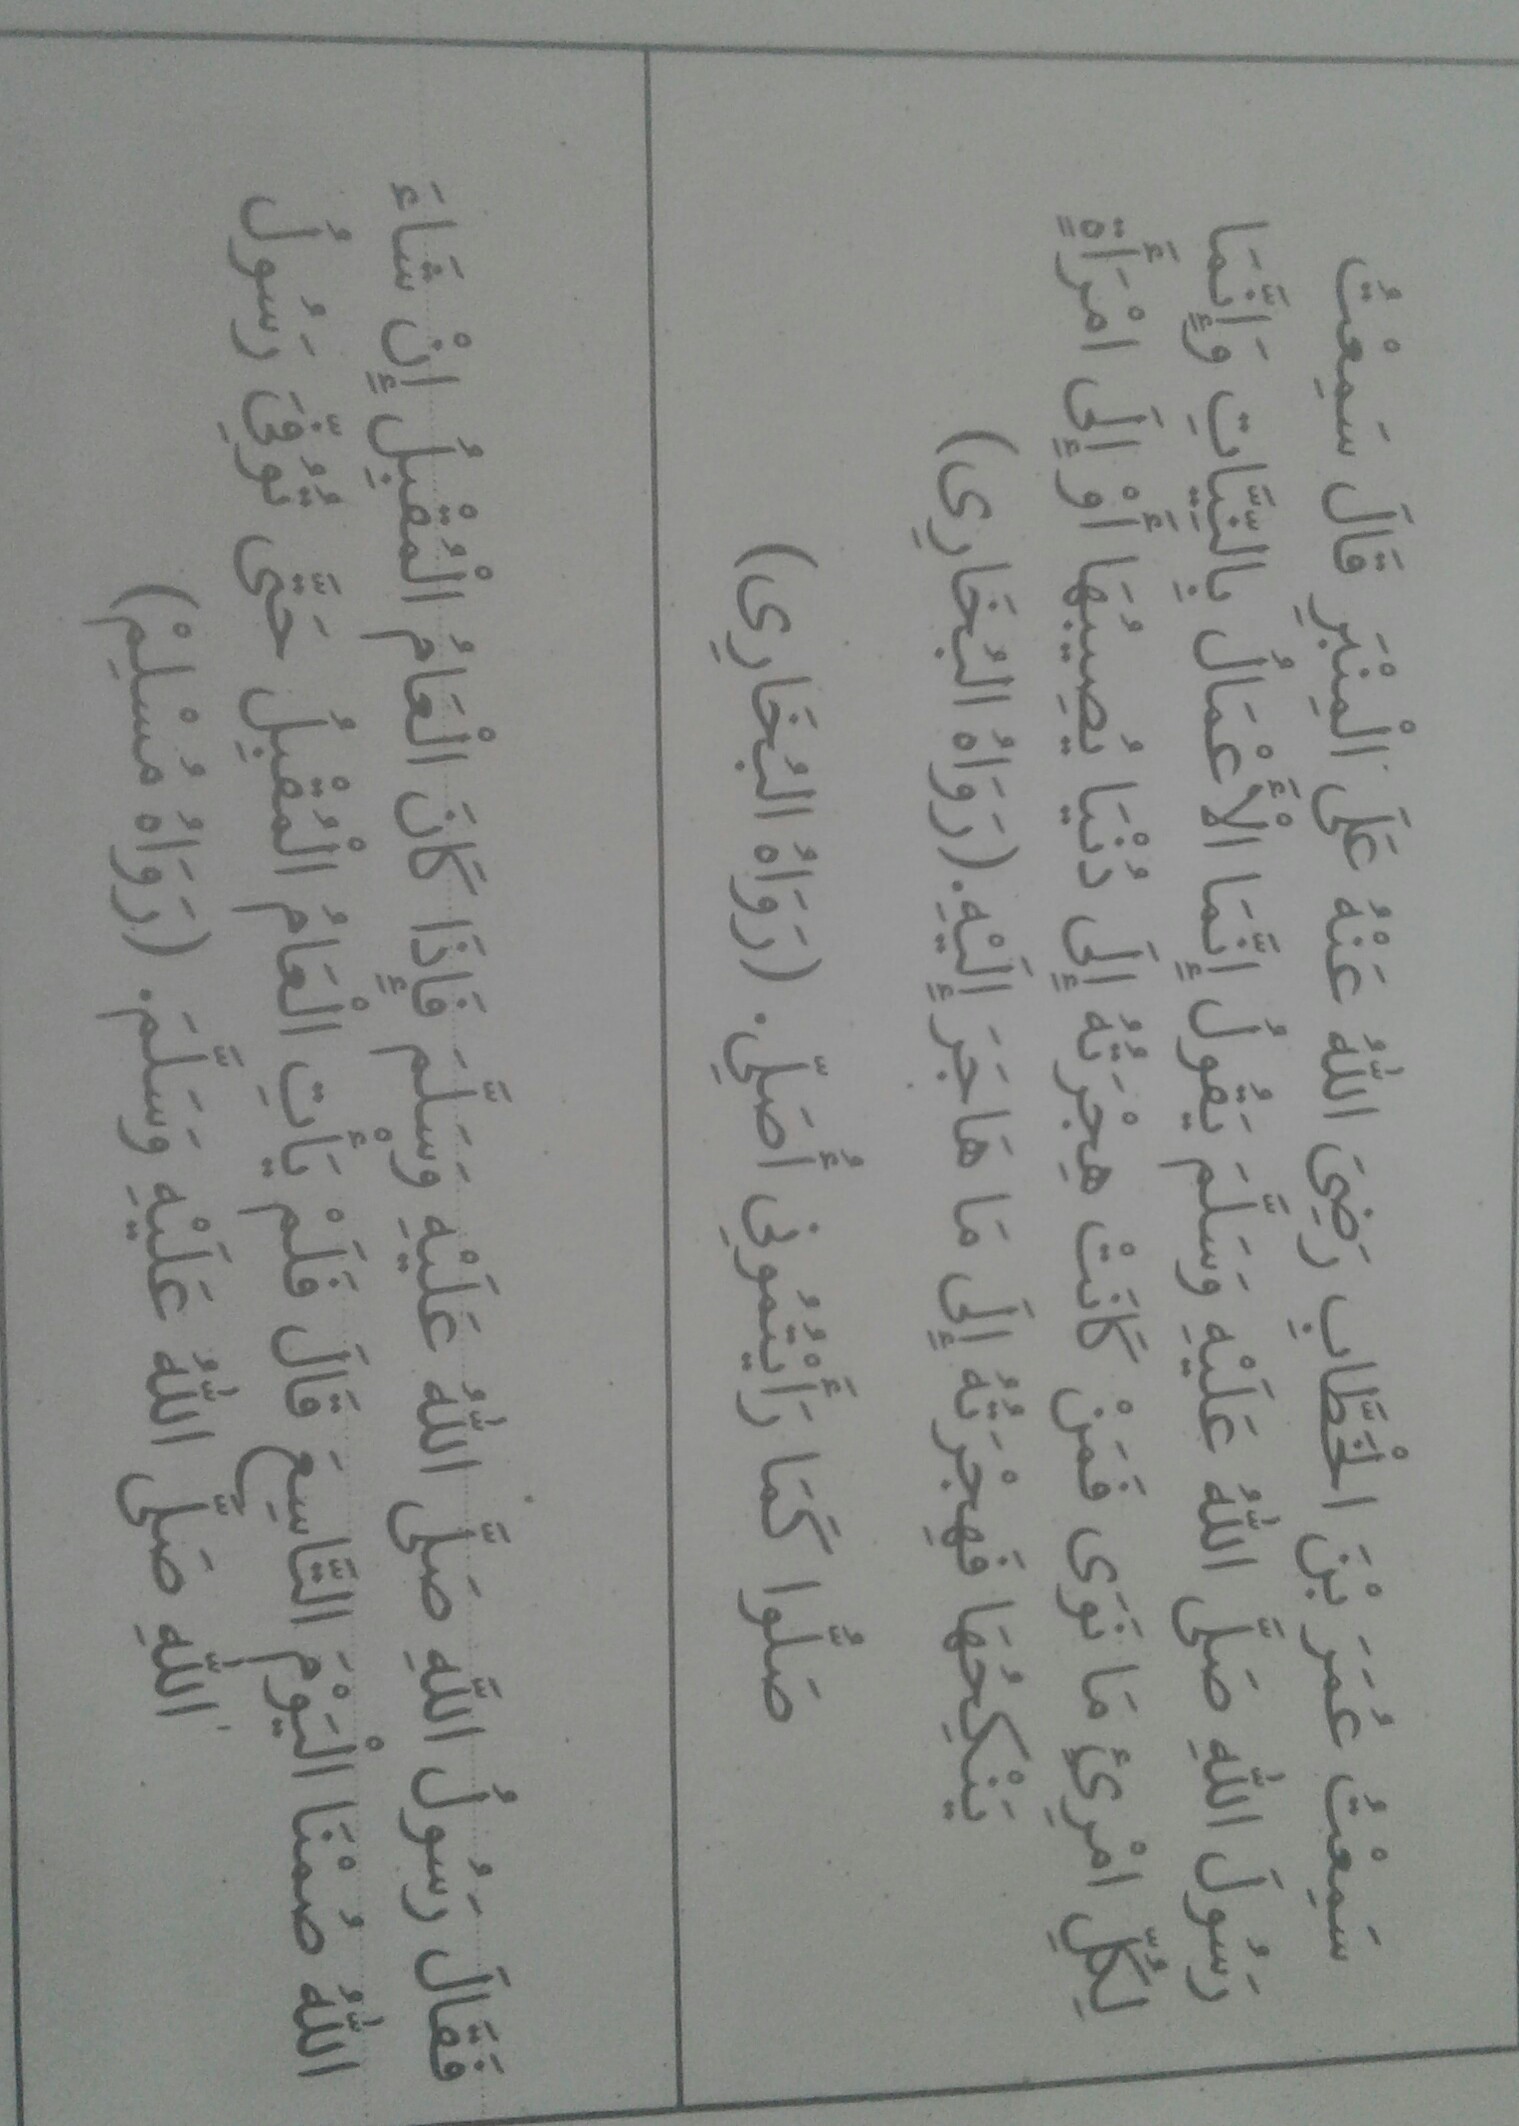 سَمِعْتُ عُمَرَ بْنَ الْخَطَّابِ رَضِيَ اللّٰهُ عَنْهُ عَلَى الْمِنْبَرِ قَالَ سَمِعْتُ
رَسُولَ اللّٰهِ صَلَّى اللّٰهُ عَلَيْهِ وَسَلَّمَ يَقُولُ إِنَّمَا الْأَعْمَالُ بِالنِّيَّاتِ وَإِنَّمَا
لِكُلِّ امْرِئٍ مَا نَوَى فَمَنْ كَانَتْ هِجْرَتُهُ إِلَى دُنْيَا يُصِيبُهَا أَوْ إِلَى امْرَأَةٍ
يَنْكِحُهَا فَهِجْرَتُهُ إِلَى مَا هَاجَرَ إِلَيْهِ. (رَوَاهُ البُخَارِى)
صَلُّوا كَمَا رَأَيْتُمُونِى أُصَلِّى. (رَوَاهُ البُخَارِى)
فَقَالَ رَسُولُ اللّٰهِ صَلَّى اللّٰهُ عَلَيْهِ وَسَلَّمَ فَإِذَا كَانَ الْعَامُ الْمُقْبِلُ إِنْ شَاءَ
اللّٰهُ صُمْنَا الْيَوْمَ التَّاسِعَ قَالَ فَلَمْ يَأْتِ الْعَامُ الْمُقْبِلُ حَتَّى تُوُفِّىَ رَسُولُ
اللّٰهِ صَلَّى اللّٰهُ عَلَيْهِ وَسَلَّمَ. (رَوَاهُ مُسْلِمْ)